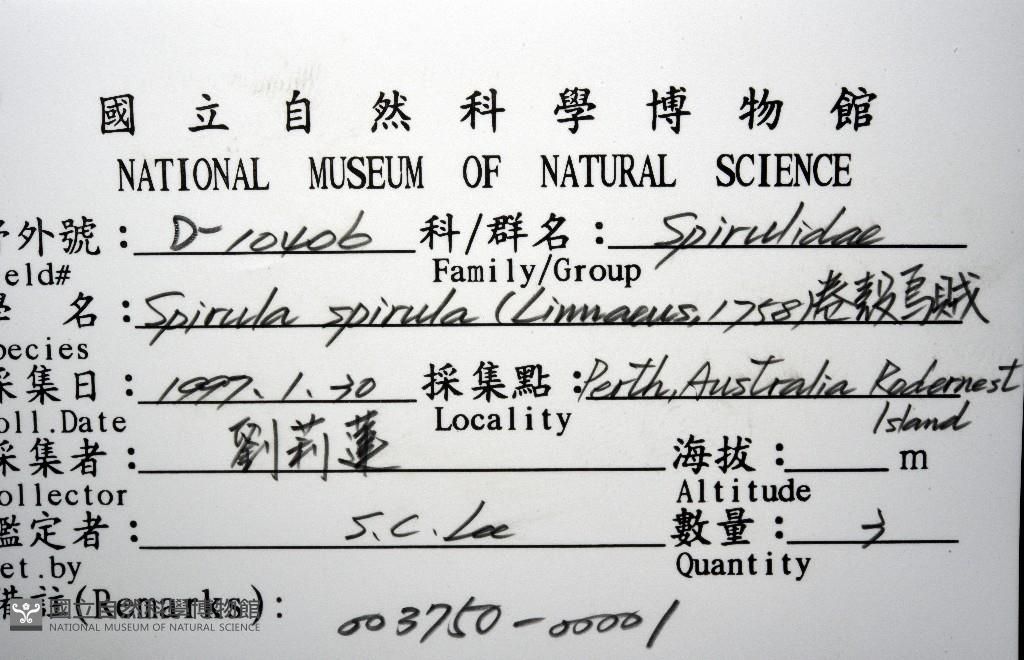 國立自然科學博物館
NATIONAL MUSEUM OF NATURAL SCIENCE
外號： D-10406 科/群名： Spirulidae
eld# Family/Group
名： Spirula spirula (Linnaeus, 1758) 卷殼烏賊
pecies
採集日： 1997. 1. 30 採集點： Perth, Australia Rodernest
oll.Date Locality Island
採集者： 劉莉蓮 海拔： m
ollector Altitude
鑑定者： S.C. Lee 數量： 3
et.by Quantity
備註(Remarks):
003750-00001
國立自然科學博物館
NATIONAL MUSEUM OF NATURAL SCIENCE